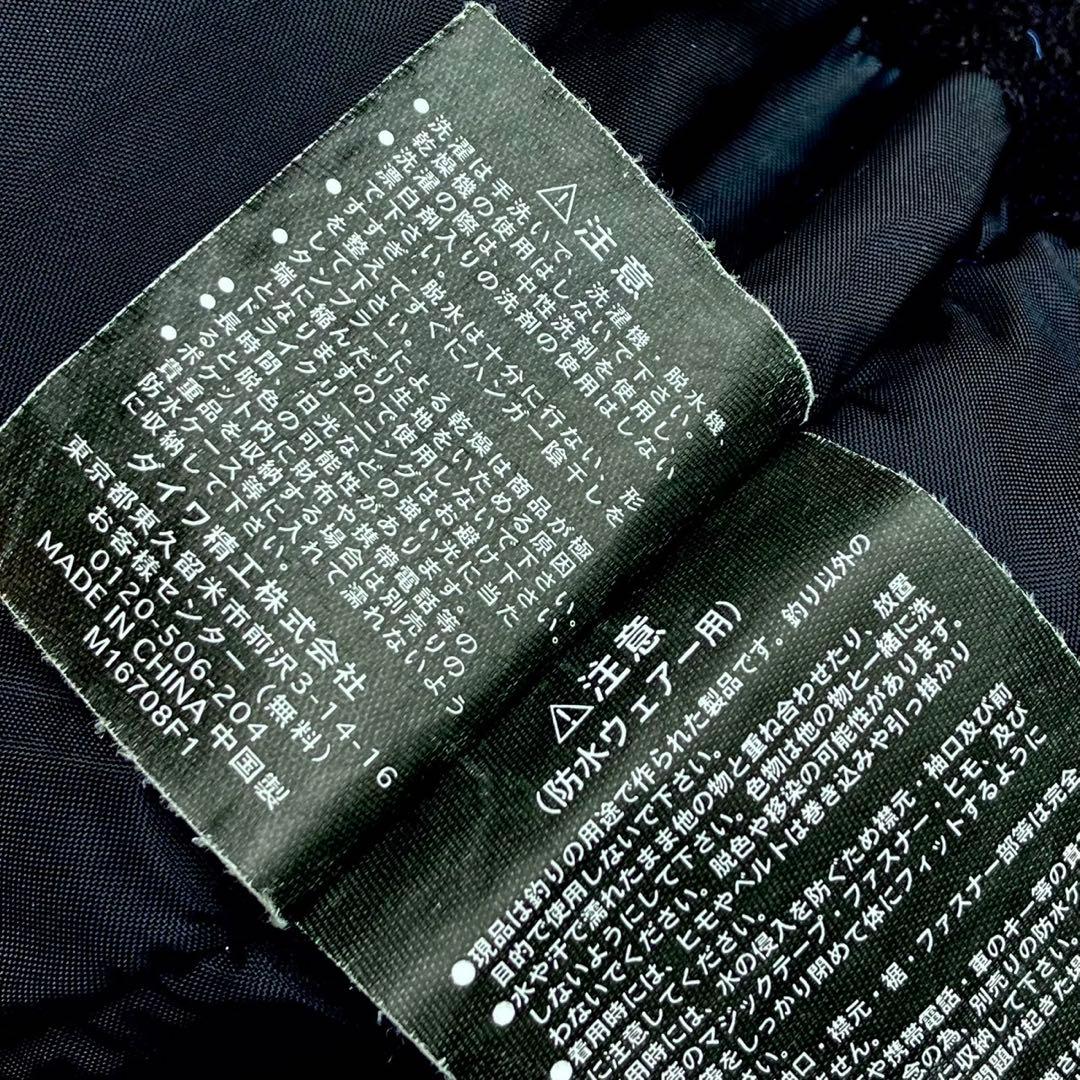 ⚠注意
●洗濯は手洗いで、洗濯機・脱水機、
乾燥機の使用はしないで下さい。
●洗濯の際は、中性洗剤を使用し、
漂白剤入りの洗剤の使用はしない
で下さい。
●すすぎ・脱水は十分に行ない、形
を整えてすぐにハンガー陰干しを
して下さい。
●タンブラーによる乾燥は商品が極
端に縮んだり生地をいためる原因
となりますので使用しないで下さい。
●ドライクリーニングはお避け下さい。
●長時間、日光などの強い光に当た
ると脱色の可能性があります。
●ポケット内に財布や携帯電話等の
貴重品を収納する場合は別売りの
防水ケース等に入れて濡れないよう
に収納して下さい。
ダイワ精工株式会社
東京都東久留米市前沢3-14-16
お客様センター (無料)
0120-506-204
MADE IN CHINA 中国製
M16708F1
⚠注意
(防水ウェアー用)
●現品は釣りの用途で作られた製品です。釣り以外の
目的で使用しないで下さい。
●水や汗で濡れたまま他の物と重ね合わせたり、放置
しないようにして下さい。色物は他の物と一緒に洗
わないでください。脱色や移染の可能性があります。
●着用時には、ヒモやベルトは巻き込みや引っ掛かり
に注意してください。
用時には、水の侵入を防ぐため襟元・袖口及び前
等のマジックテープ・ファスナー・ヒモ、及び
等をしっかり閉めて体にフィットするように
さい。
口・襟元・裾・ファスナー部等は完全
せん。
や携帯電話・車のキー等の貴
念の為、別売りの防水ケ
に収納して下さい。
問題が起きた場